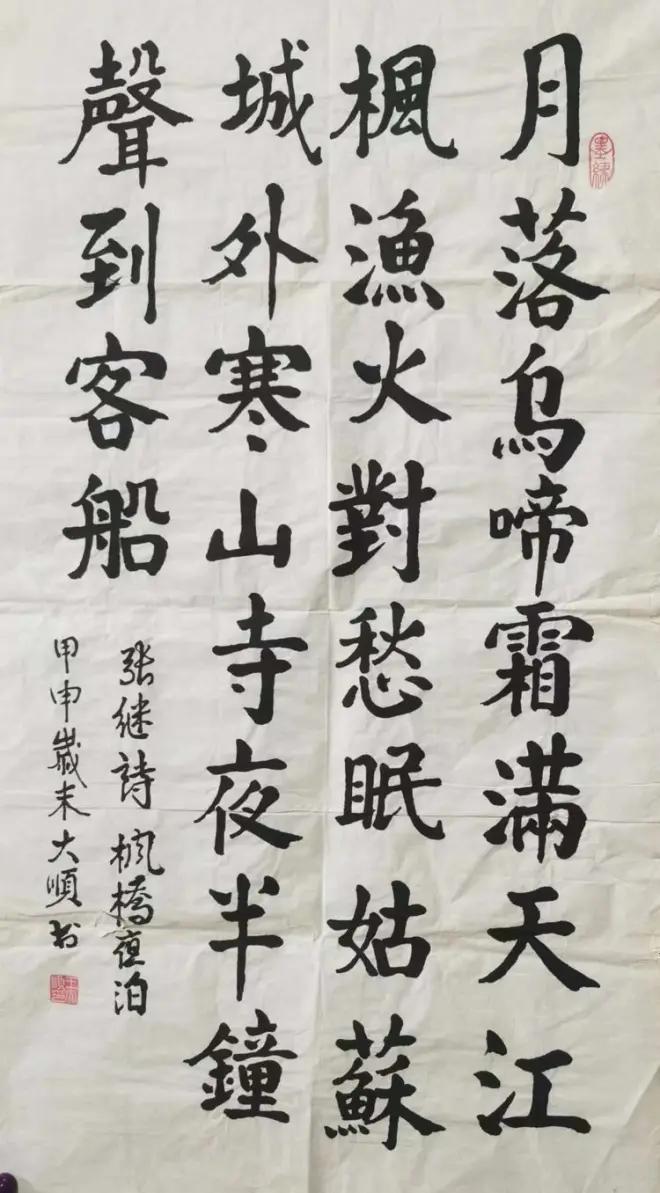 月落烏啼霜滿天江
楓漁火對愁眠姑蘇
城外寒山寺夜半鐘
聲到客船
张继詩楓橋夜泊
甲申歲末大順书
墨缘